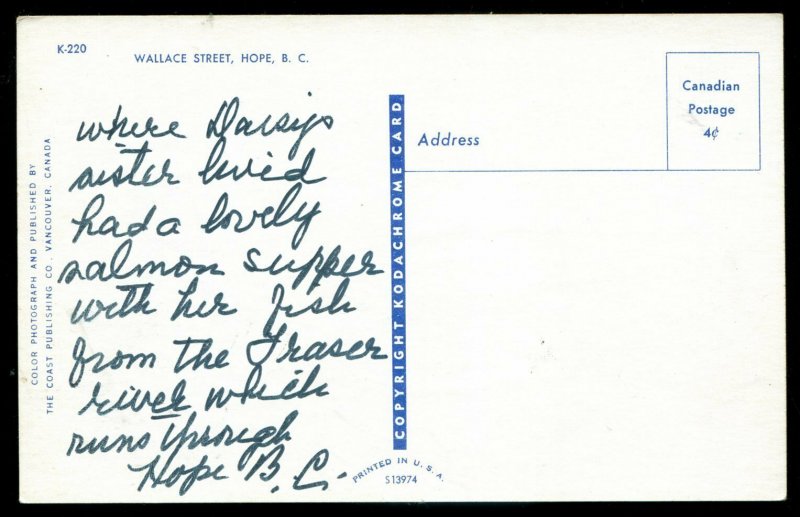 K-220
WALLACE STREET, HOPE, B. C.
where Daisys
sister lived
had a lovely
salmon supper
with her fish
from the Fraser
river which
runs through
Hope B.C.
COLOR PHOTOGRAPH AND PUBLISHED BY
THE COAST PUBLISHING CO., VANCOUVER, CANADA
COPYRIGHT KODACHROME CARD
PRINTED IN U. S. A.
S13974
Address
Canadian
Postage
4¢